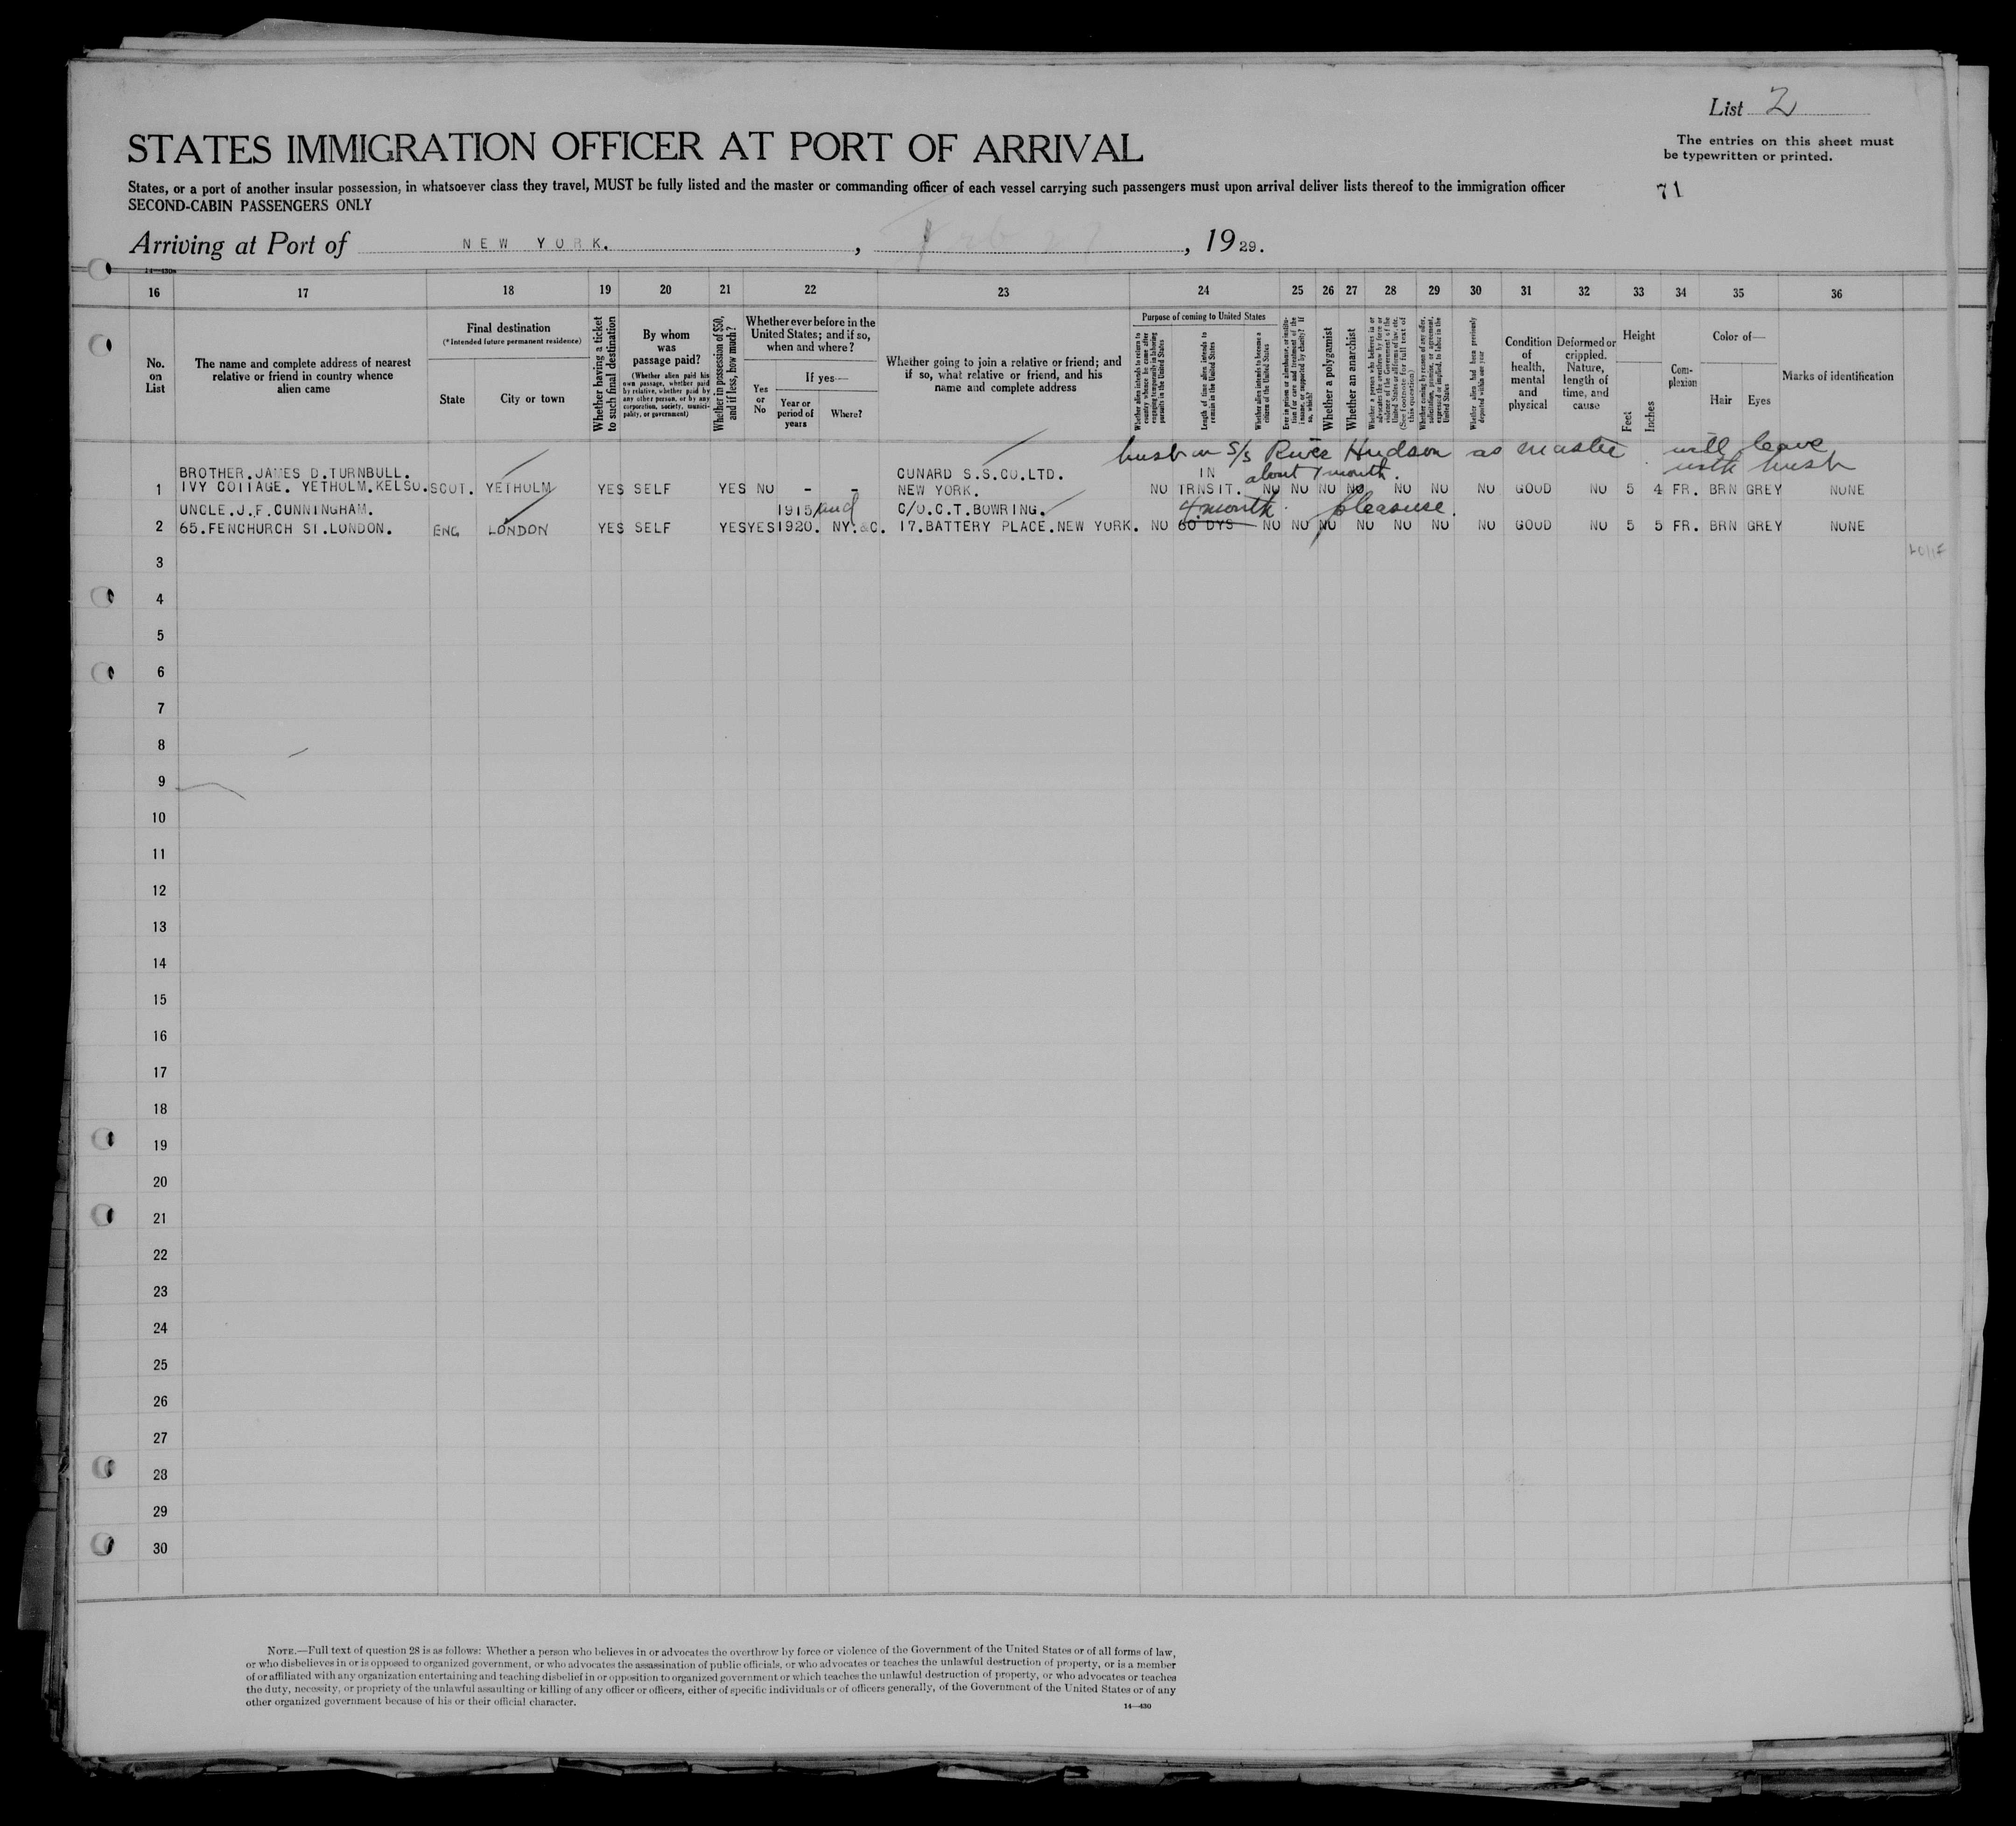 List 2
STATES IMMIGRATION OFFICER AT PORT OF ARRIVAL
The entries on this sheet must
be typewritten or printed.
States, or a port of another insular possession, in whatsoever class they travel, MUST be fully listed and the master or commanding officer of each vessel carrying such passengers must upon arrival deliver lists thereof to the immigration officer
SECOND-CABIN PASSENGERS ONLY
71
Arriving at Port of NEW YORK. , Feb 27 , 1929.
14—430a
16 17 18 19 20 21 22 23 24 25 26 27 28 29 30 31 32 33 34 35 36
No.
on
List
The name and complete address of nearest
relative or friend in country whence
alien came
Final destination
(*Intended future permanent residence)
State
City or town
Whether having a ticket
to such final destination
By whom
was
passage paid?
(Whether alien paid his
own passage, whether paid
by relative, whether paid by
any other person, or by any
corporation, society, munici-
pality, or government)
Whether in possession of $50,
and if less, how much?
Whether ever before in the
United States; and if so,
when and where?
Yes
or
No
If yes—
Year or
period of
years
Where?
Whether going to join a relative or friend; and
if so, what relative or friend, and his
name and complete address
Purpose of coming to United States
Whether alien intends to return to
country whence he came after
engaging temporarily in laboring
pursuits in the United States
Length of time alien intends to
remain in the United States
Whether alien intends to become a
citizen of the United States
Ever in prison or almshouse, or institu-
tion for care and treatment of the
insane, or supported by charity? If
so, which?
Whether a polygamist
Whether an anarchist
Whether a person who believes in or
advocates the overthrow by force or
violence of the Government of the
United States or all forms of law, etc.
(See footnote for full text of
this question)
Whether coming by reason of any offer,
solicitation, promise, or agreement,
expressed or implied, to labor in the
United States
Whether alien had been previously
deported within one year
Condition
of
health,
mental
and
physical
Deformed or
crippled.
Nature,
length of
time, and
cause
Height
Feet
Inches
Com-
plexion
Color of—
Hair
Eyes
Marks of identification
husb on S/s River Hudson as master. will leave
with husb
about 1 month.
BROTHER.JAMES D.TURNBULL. CUNARD S.S.CO.LTD. IN
1 IVY COTTAGE. YETHOLM.KELSO. SCOT. YETHOLM YES SELF YES NO - - NEW YORK. NO TRNSIT. NO NO NO NO NO NO NO GOOD NO 5 4 FR. BRN GREY NONE
UNCLE.J.F.CUNNINGHAM. 1915 and C/O.C.T.BOWRING. 4 month pleasure.
2 65.FENCHURCH ST.LONDON. ENG LONDON YES SELF YES YES 1920. NY.&C. 17.BATTERY PLACE.NEW YORK. NO 60 DYS NO NO NO NO NO NO NO GOOD NO 5 5 FR. BRN GREY NONE
3
4
5
6
7
8
9
10
11
12
13
14
15
16
17
18
19
20
21
22
23
24
25
26
27
28
29
30
NOTE.—Full text of question 28 is as follows: Whether a person who believes in or advocates the overthrow by force or violence of the Government of the United States or of all forms of law,
or who disbelieves in or is opposed to organized government, or who advocates the assassination of public officials, or who advocates or teaches the unlawful destruction of property, or is a member
of or affiliated with any organization entertaining and teaching disbelief in or opposition to organized government or which teaches the unlawful destruction of property, or who advocates or teaches
the duty, necessity, or propriety of the unlawful assaulting or killing of any officer or officers, either of specific individuals or of officers generally, of the Government of the United States or of any
other organized government because of his or their official character.
14—430